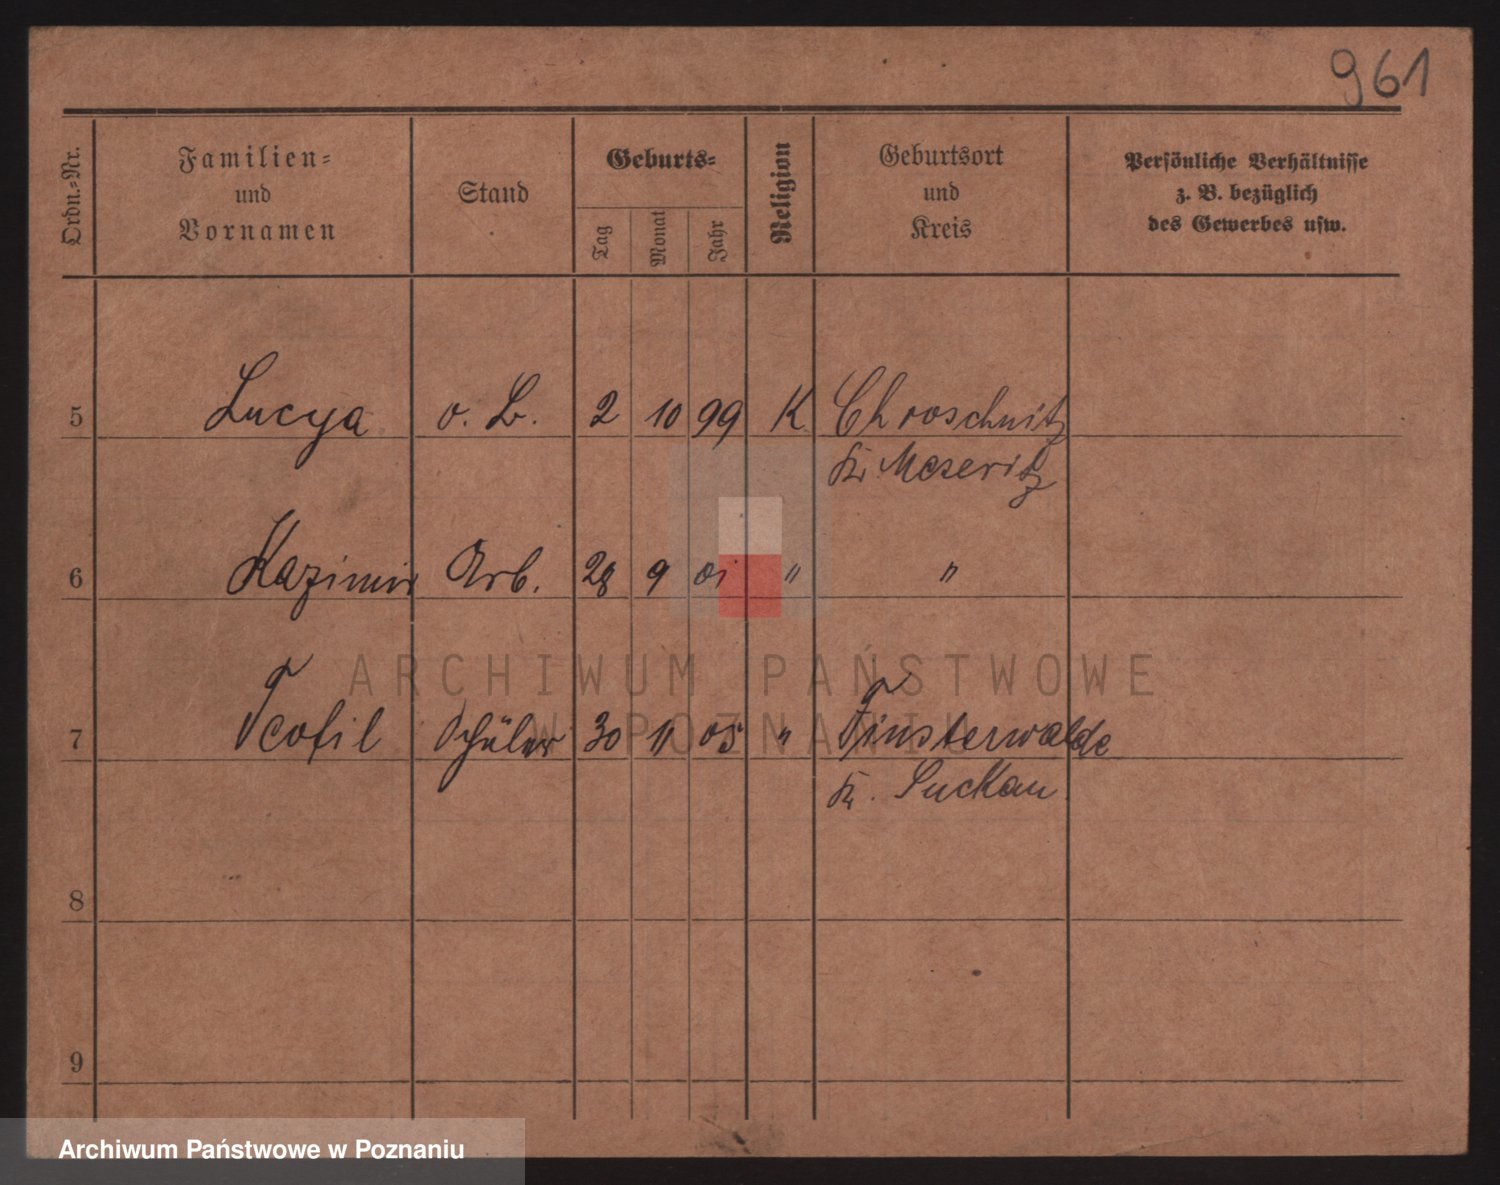 961
Ordn.-Nr.
Familien-
und
Vornamen
Stand
Geburts-
Tag
Monat
Jahr
Religion
Geburtsort
und
Kreis
Persönliche Verhältnisse
z. B. bezüglich
des Gewerbes usw.
5 Lucya o. B. 2 10 99 K Chrooschnitz
Kr. Meseritz
6 Kazimir Arb. 28 9 01 " "
7 Teofil Schüler 30 11 05 " Finsterwalde
Kr. Luckau
8
9
ARCHIWUM PAŃSTWOWE
W POZNANIU
Archiwum Państwowe w Poznaniu